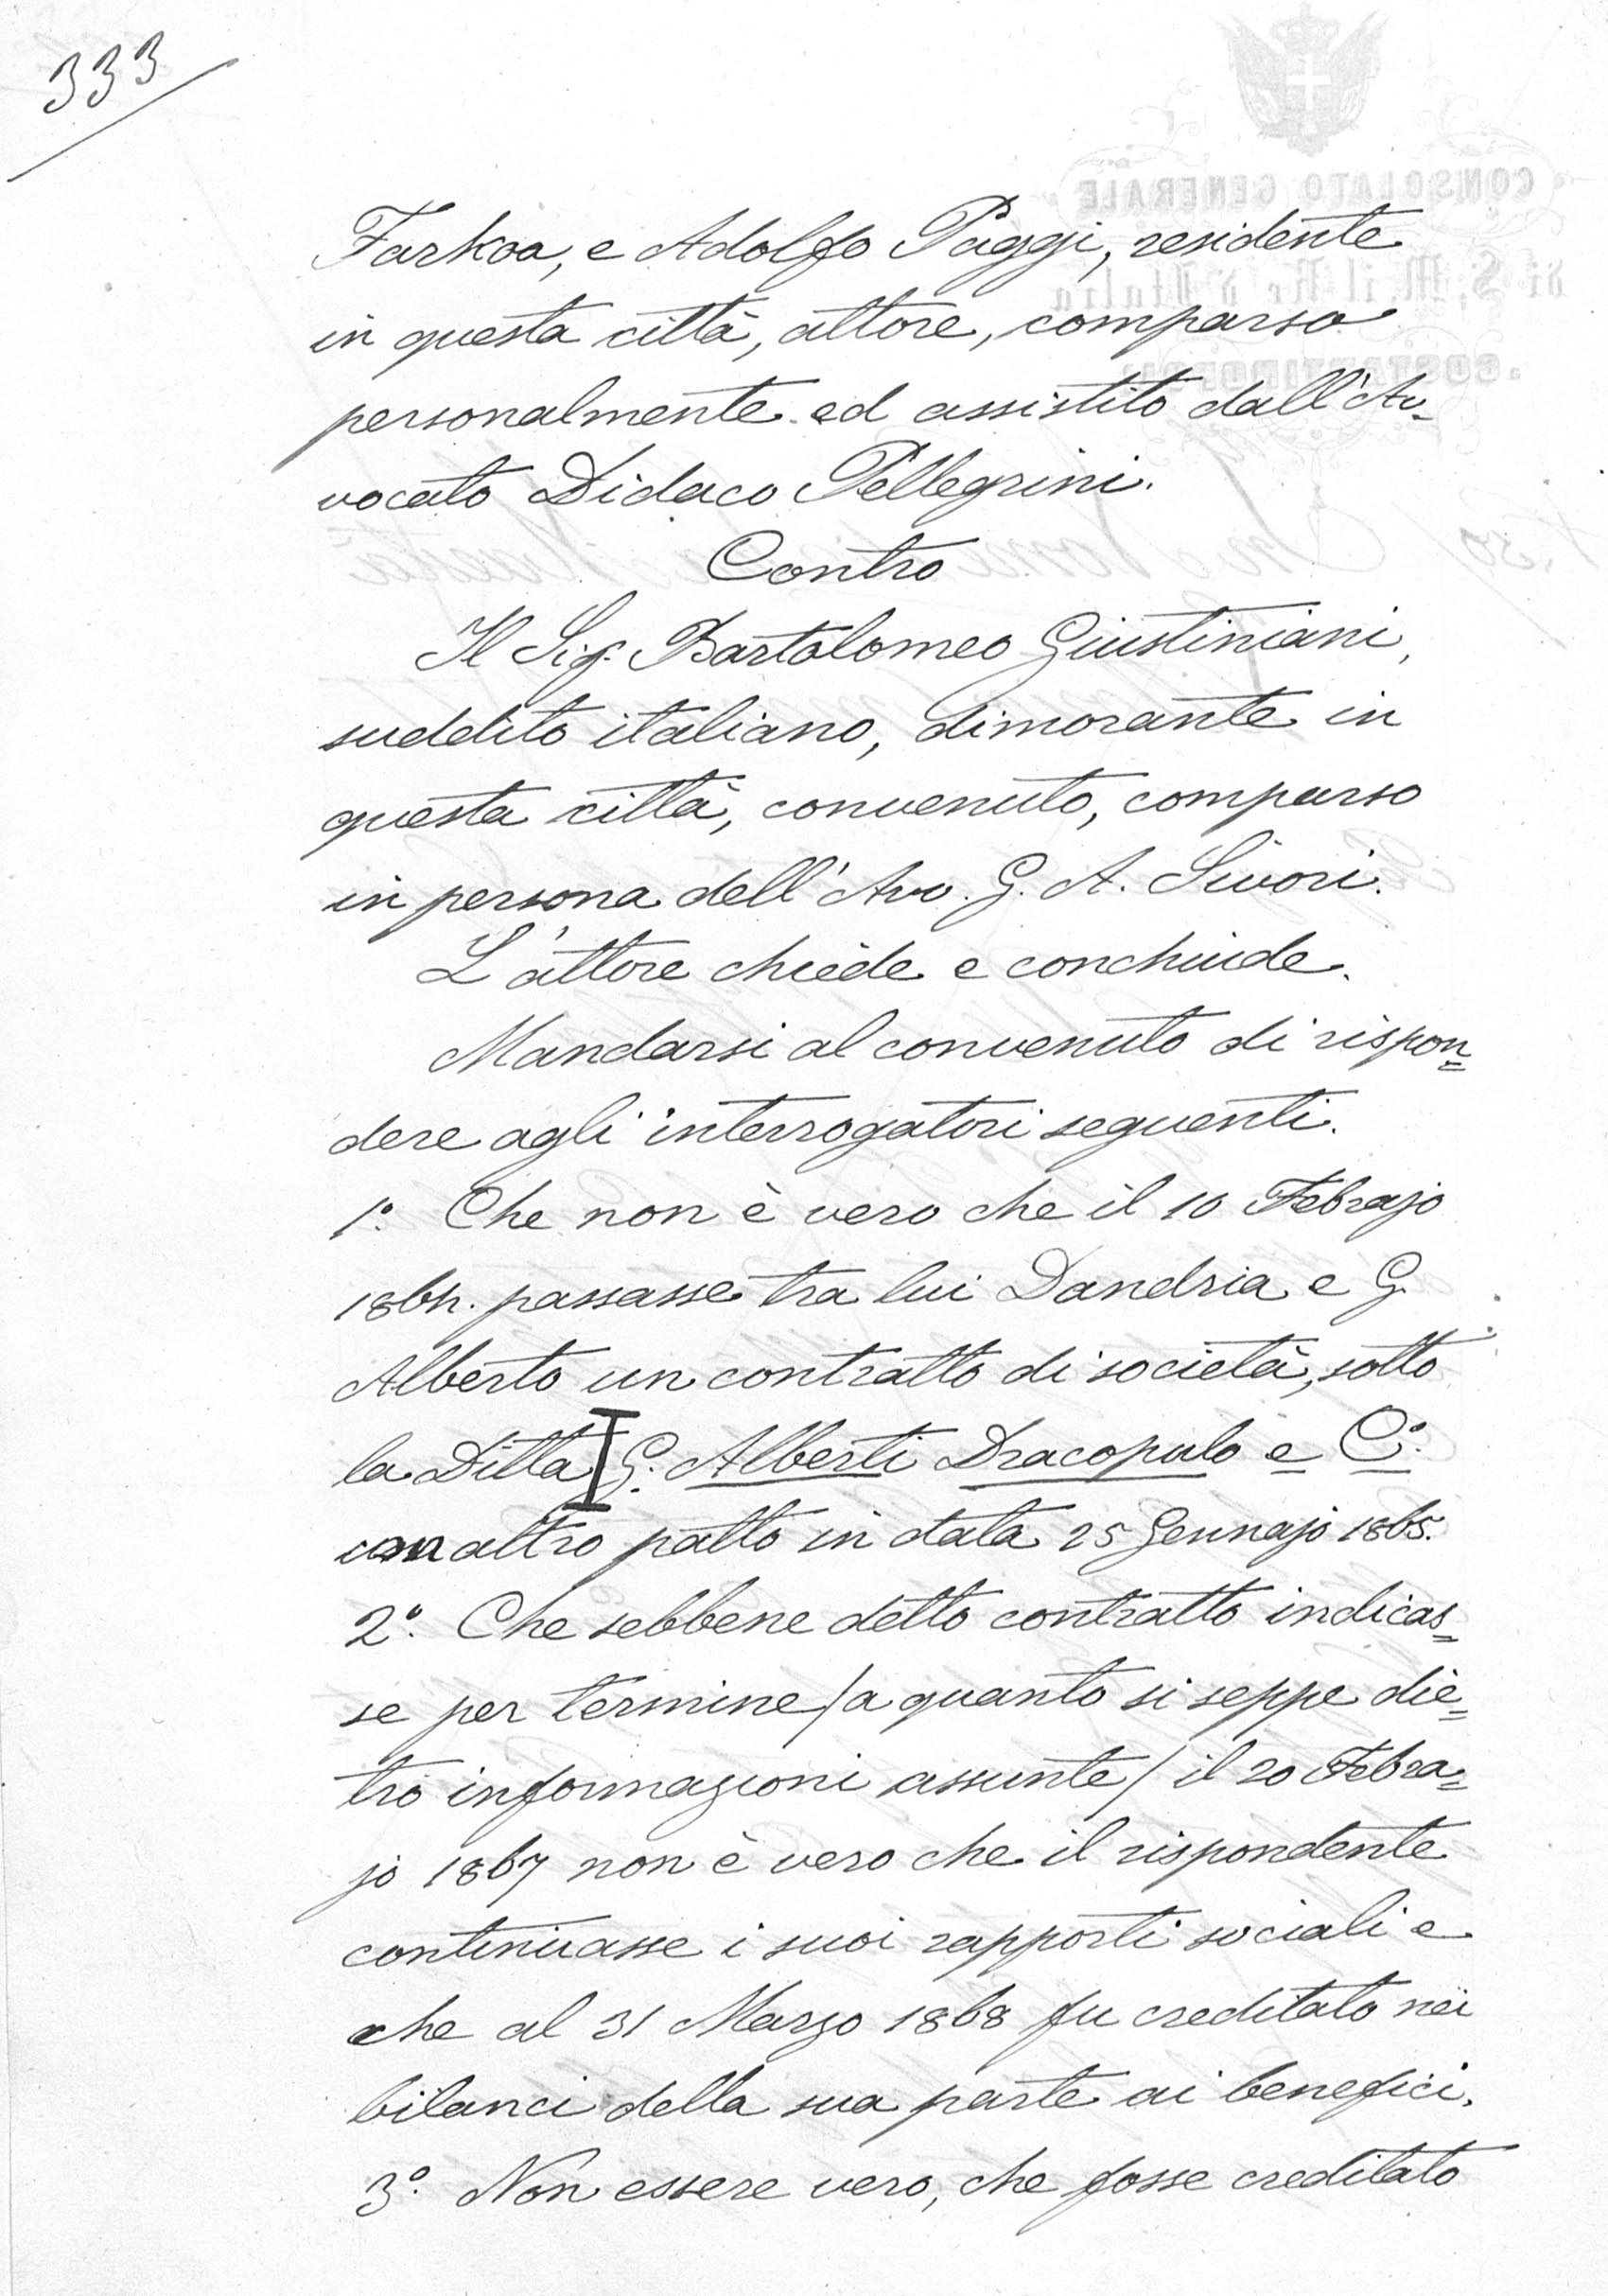 333
CONSOLATO GENERALE
di S. M. il Re d'Italia
COSTANTINOPOLI
Farkoa, e Adolfo Paggi, residente
in questa città, attore, comparso
personalmente ed assistito dall'Av-
vocato Didaco Pellegrini.
Contro
Il Sig. Bartolomeo Giustiniani,
suddito italiano, dimorante in
questa città, convenuto, comparso
in persona dell'Avv. G. A. Sivori.
L'attore chiede e conchiude.
Mandarsi al convenuto di rispon=
dere agli interrogatori seguenti.
1º. Che non è vero che il 10 Febrajo
186 . passasse tra lui Dandria e G.
Alberto un contratto di società, sotto
la Ditta G. Alberti Dracopulo e Cº.
un altro patto in data 25 Gennajo 1865.
2º. Che sebbene detto contratto indicas=
se per termine /a quanto si seppe die=
tro informazioni assunte/ il 20 Febra=
jo 1867 non è vero che il rispondente
continuasse i suoi rapporti sociali e
che al 31 Marzo 1868 fu creditato nei
bilanci della sua parte ai benefici.
3º. Non essere vero, che fosse creditato